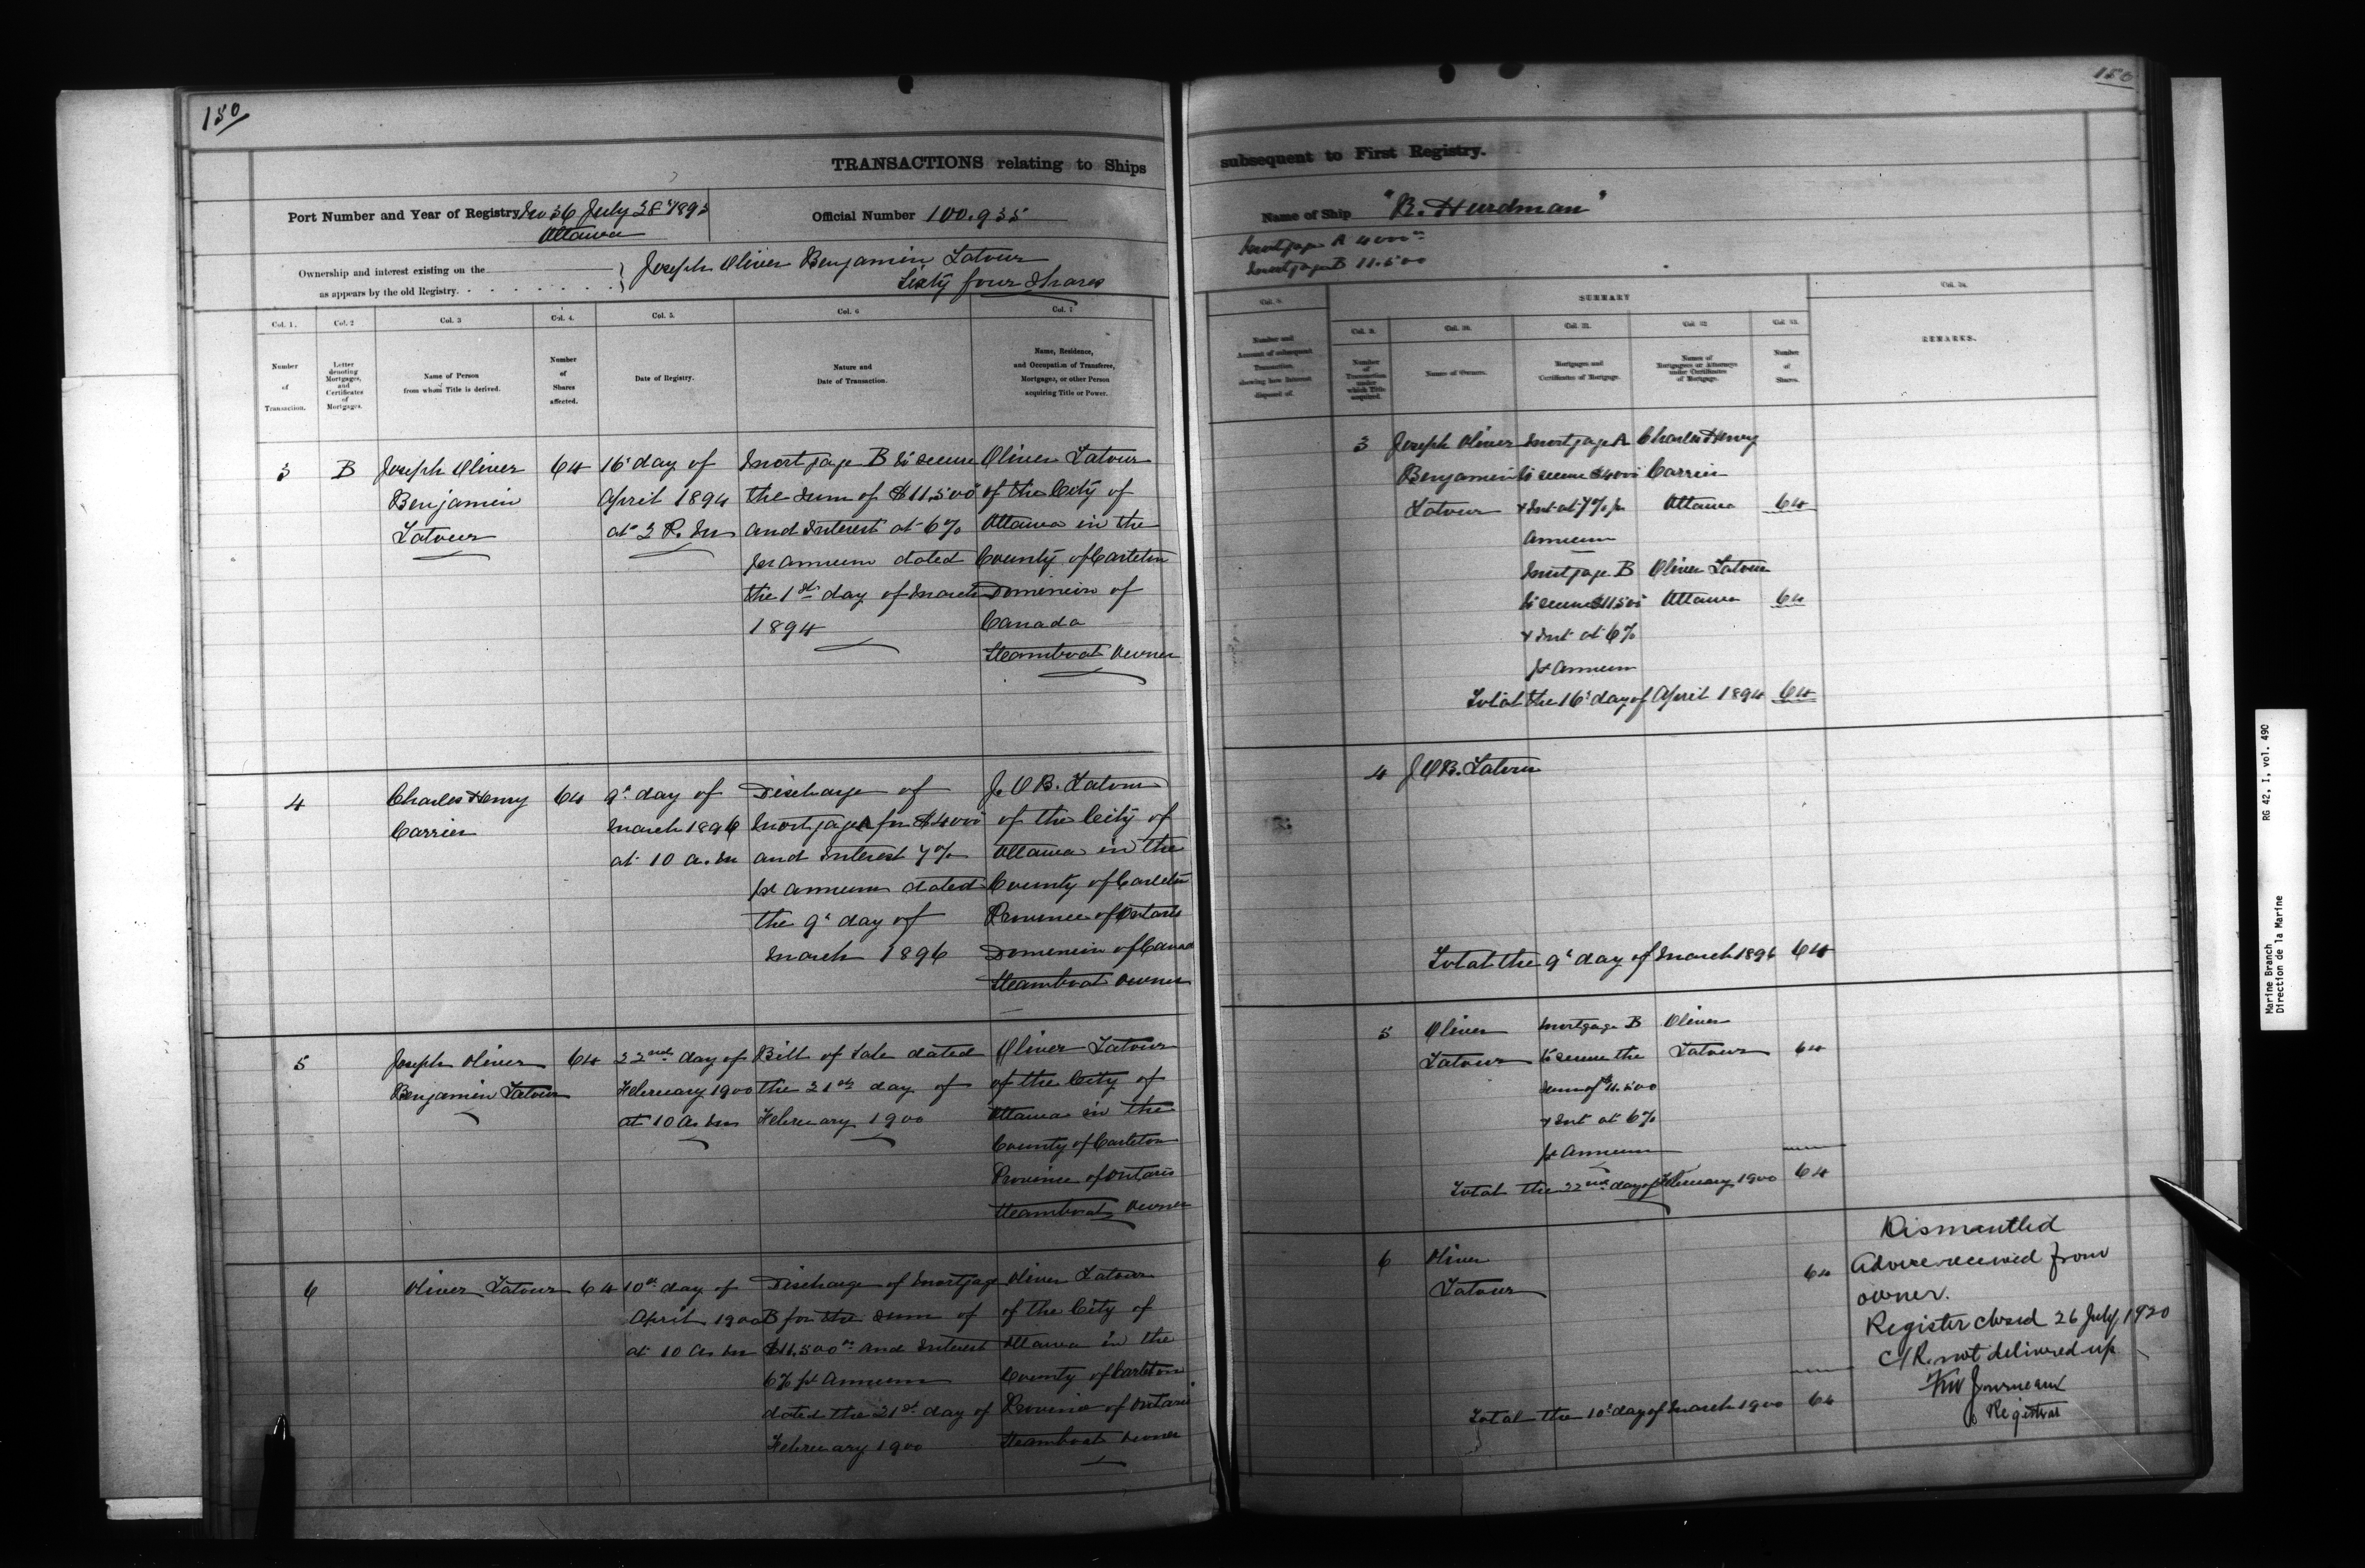 150
150
TRANSACTIONS relating to Ships
subsequent to First Registry.
Port Number and Year of Registry No 36 July 28 1893
Ottawa
Official Number 100.935
Name of Ship "R. Hurdman"
Mortgage A 4000
Mortgage B 11.500
Ownership and interest existing on the
as appears by the old Registry.
Joseph Oliver Benjamin Latour
Sixty four Shares
Col. 1.
Col. 2
Col. 3
Col. 4.
Col. 5.
Col. 6
Col. 7
Number
of
Transaction.
Letter
denoting
Mortgages,
and
Certificates
of
Mortgages.
Name of Person
from whom Title is derived.
Number
of
Shares
affected.
Date of Registry.
Nature and
Date of Transaction.
Name, Residence,
and Occupation of Transferee,
Mortgagee, or other Person
acquiring Title or Power.
3
B
Joseph Oliver
Benjamin
Latour
64
16' day of
April 1894
at 2 P. M
Mortgage B to secure
the sum of $11.500
and Interest at 6%
per annum dated
the 1st day of March
1894
Oliver Latour
of the City of
Ottawa in the
County of Carleton
Dominion of
Canada
Steamboat Owner
4
Charles Henry
Carrier
64
9' day of
March 1896
at 10 a. m
Discharge of
Mortgage A for $4000
and Interest 7%
pr annum dated
the 9' day of
March 1896
J. O B. Latour
of the City of
Ottawa in the
County of Carleton
Province of Ontario
Dominion of Canad
Steamboat owner
5
Joseph Oliver
Benjamin Latour
64
22nd day of
February 1900
at 10 a. m
Bill of Sale dated
the 21st day of
February 1900
Oliver Latour
of the City of
Ottawa in the
County of Carleton
Province of Ontario
Steamboat Owner
6
Oliver Latour
64
10th day of
April 1900
at 10 a. m
Discharge of Mortgage
B for the sum of
$11,500 and Interest
6% pr Annum
dated the 21st day of
February 1900
Oliver Latour
of the City of
Ottawa in the
County of Carleton
Province of Ontario
Steamboat owner
Col. 8
SUMMARY
Col. 9.
Col. 10.
Col. 11.
Col. 12
Col. 13.
Col. 14.
Number and
Amount of subsequent
Transaction,
showing how Interest
disposed of.
Number
of
Transaction
under
which Title
acquired.
Names of Owners.
Mortgages and
Certificates of Mortgage.
Names of
Mortgagees or Attorneys
under Certificates
of Mortgage.
Number
of
Shares.
REMARKS.
3
Joseph Oliver
Benjamin
Latour
Mortgage A
to secure $4000
& Int at 7% pr
Annum
Charles Henry
Carrier
Ottawa
64
Mortgage B
to secure $11500
& Int at 6%
pr Annum
Oliver Latour
Ottawa
64
Total the 16' day of April 1894 64
4
J O B. Latour
Total the 9' day of March 1896 64
5
Oliver
Latour
Mortgage B
to secure the
sum of $11.500
& Int at 6%
pr Annum
Oliver
Latour
64
Total the 22nd day of February 1900 64
6
Oliver
Latour
64
Total the 10' day of March 1900 64
Dismantled
Advice received from
owner.
Register closed 26 July 1920
C/R. not delivered up
Journeaux
Registrar
Marine Branch
Direction de la Marine
RG 42, I, vol. 490